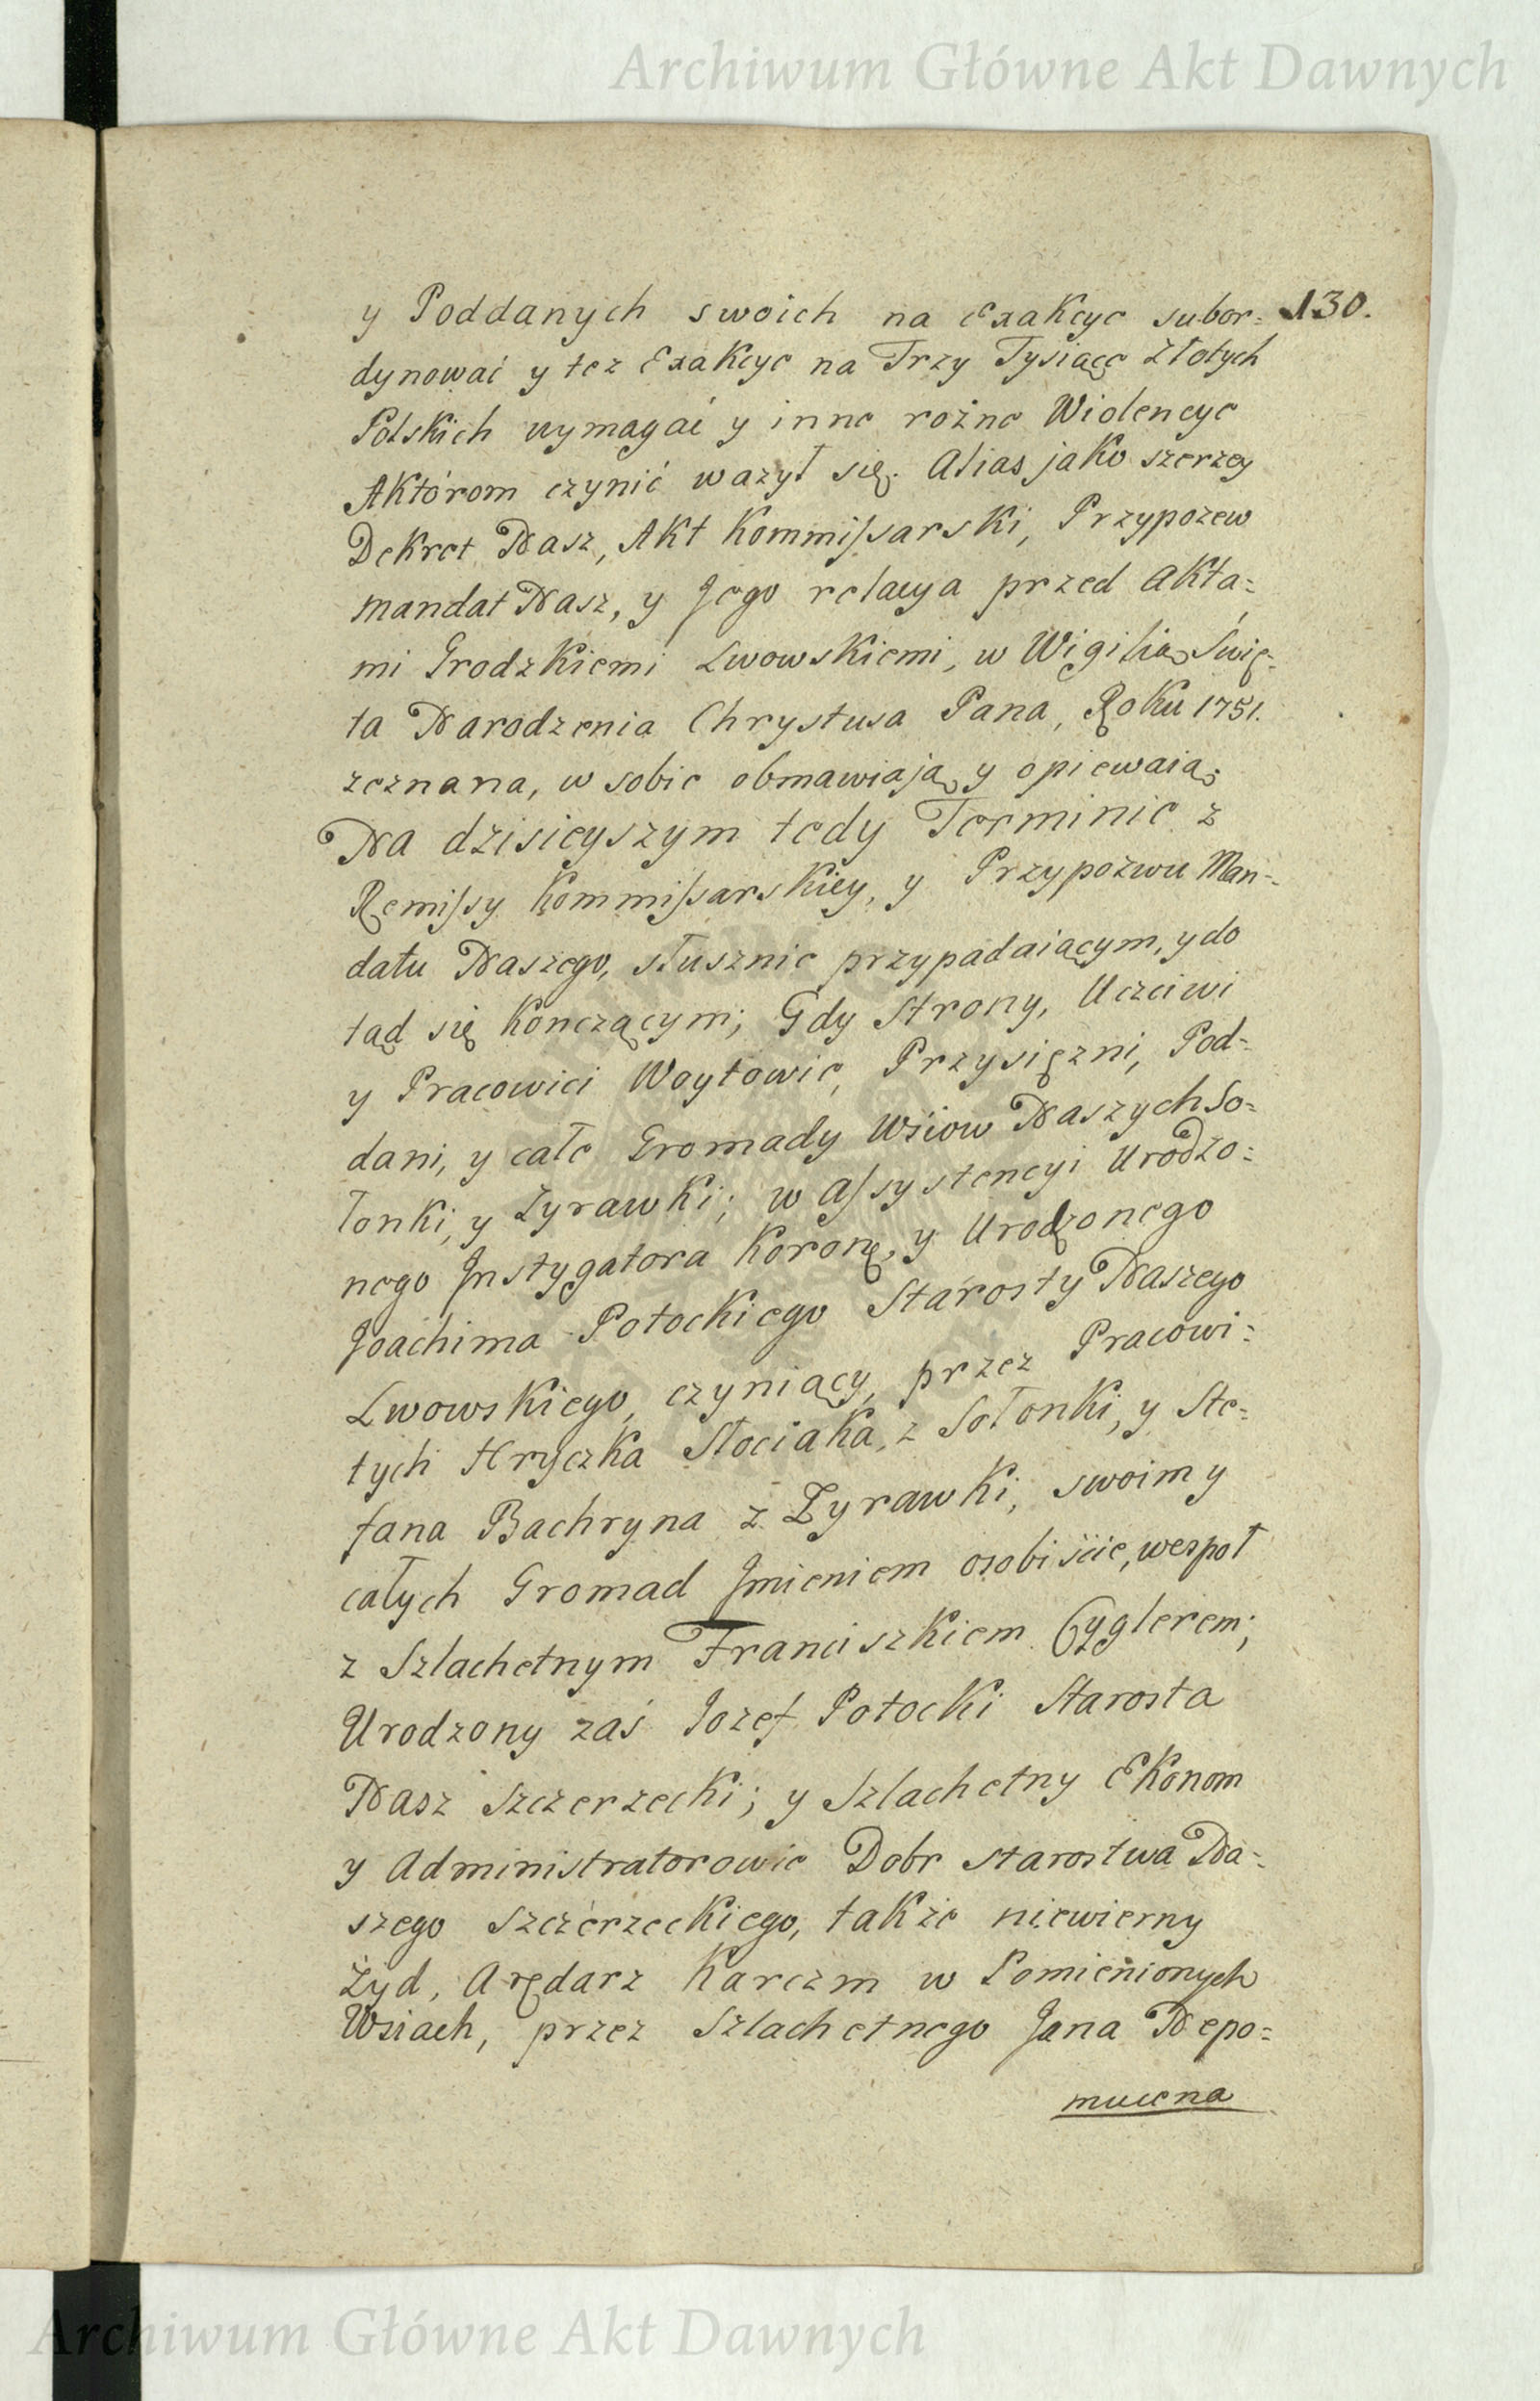 Archiwum Główne Akt Dawnych
y Poddanych swoich na Exakcye subor= 130.
dynować y też Exakcye na Trzy Tysiące Złotych
Polskich wymagać y inne rożne Wiolencye
Aktórom czynić ważył się. Alias jako szerzey
Dekret Nasz, Akt Kommissarski, Przypozew
mandat Nasz, y Jego relacya przed Akta=
mi Grodzkiemi Lwowskiemi, w Wigilią Świę=
ta Narodzenia Chrystusa Pana, Roku 1751.
zeznana, w sobie obmawiają y opiewaią;
Na dzisieyszym tedy Terminie z
Remissy Kommissarskiey, y Przypozwu Man=
datu Naszego, słusznie przypadaiącym, y do
tąd się Konczącym; Gdy Strony, Uczciwi
y Pracowici Woytowie, Przysiężni, Pod=
dani, y całe Gromady Wśiow Naszych So=
łonki, y Zyrawki; w Assystencyi Urodzo=
nego Instygatora Koronę, y Urodzonego
Joachima Potockiego Starosty Naszego
Lwowskiego, czyniący, przez Pracowi=
tych Hryczka Słociaka, z Sołonki, y Ste=
fana Bachryna z Zyrawki, swoim y
całych Gromad Jmieniem osobiście, wespoł
z Szlachetnym Franciszkiem Cyglerem;
Urodzony zaś Jozef Potocki Starosta
Nasz Szczerzecki; y Szlachetny Ekonom
y Administratorowie Dobr starostwa Na=
szego Szczerzeckiego, także niewierny
Żyd, Arędarz Karczm w Pomienionych
Wsiach, przez Szlachetnego Jana Nepo=
mucena
Archiwum Główne Akt Dawnych